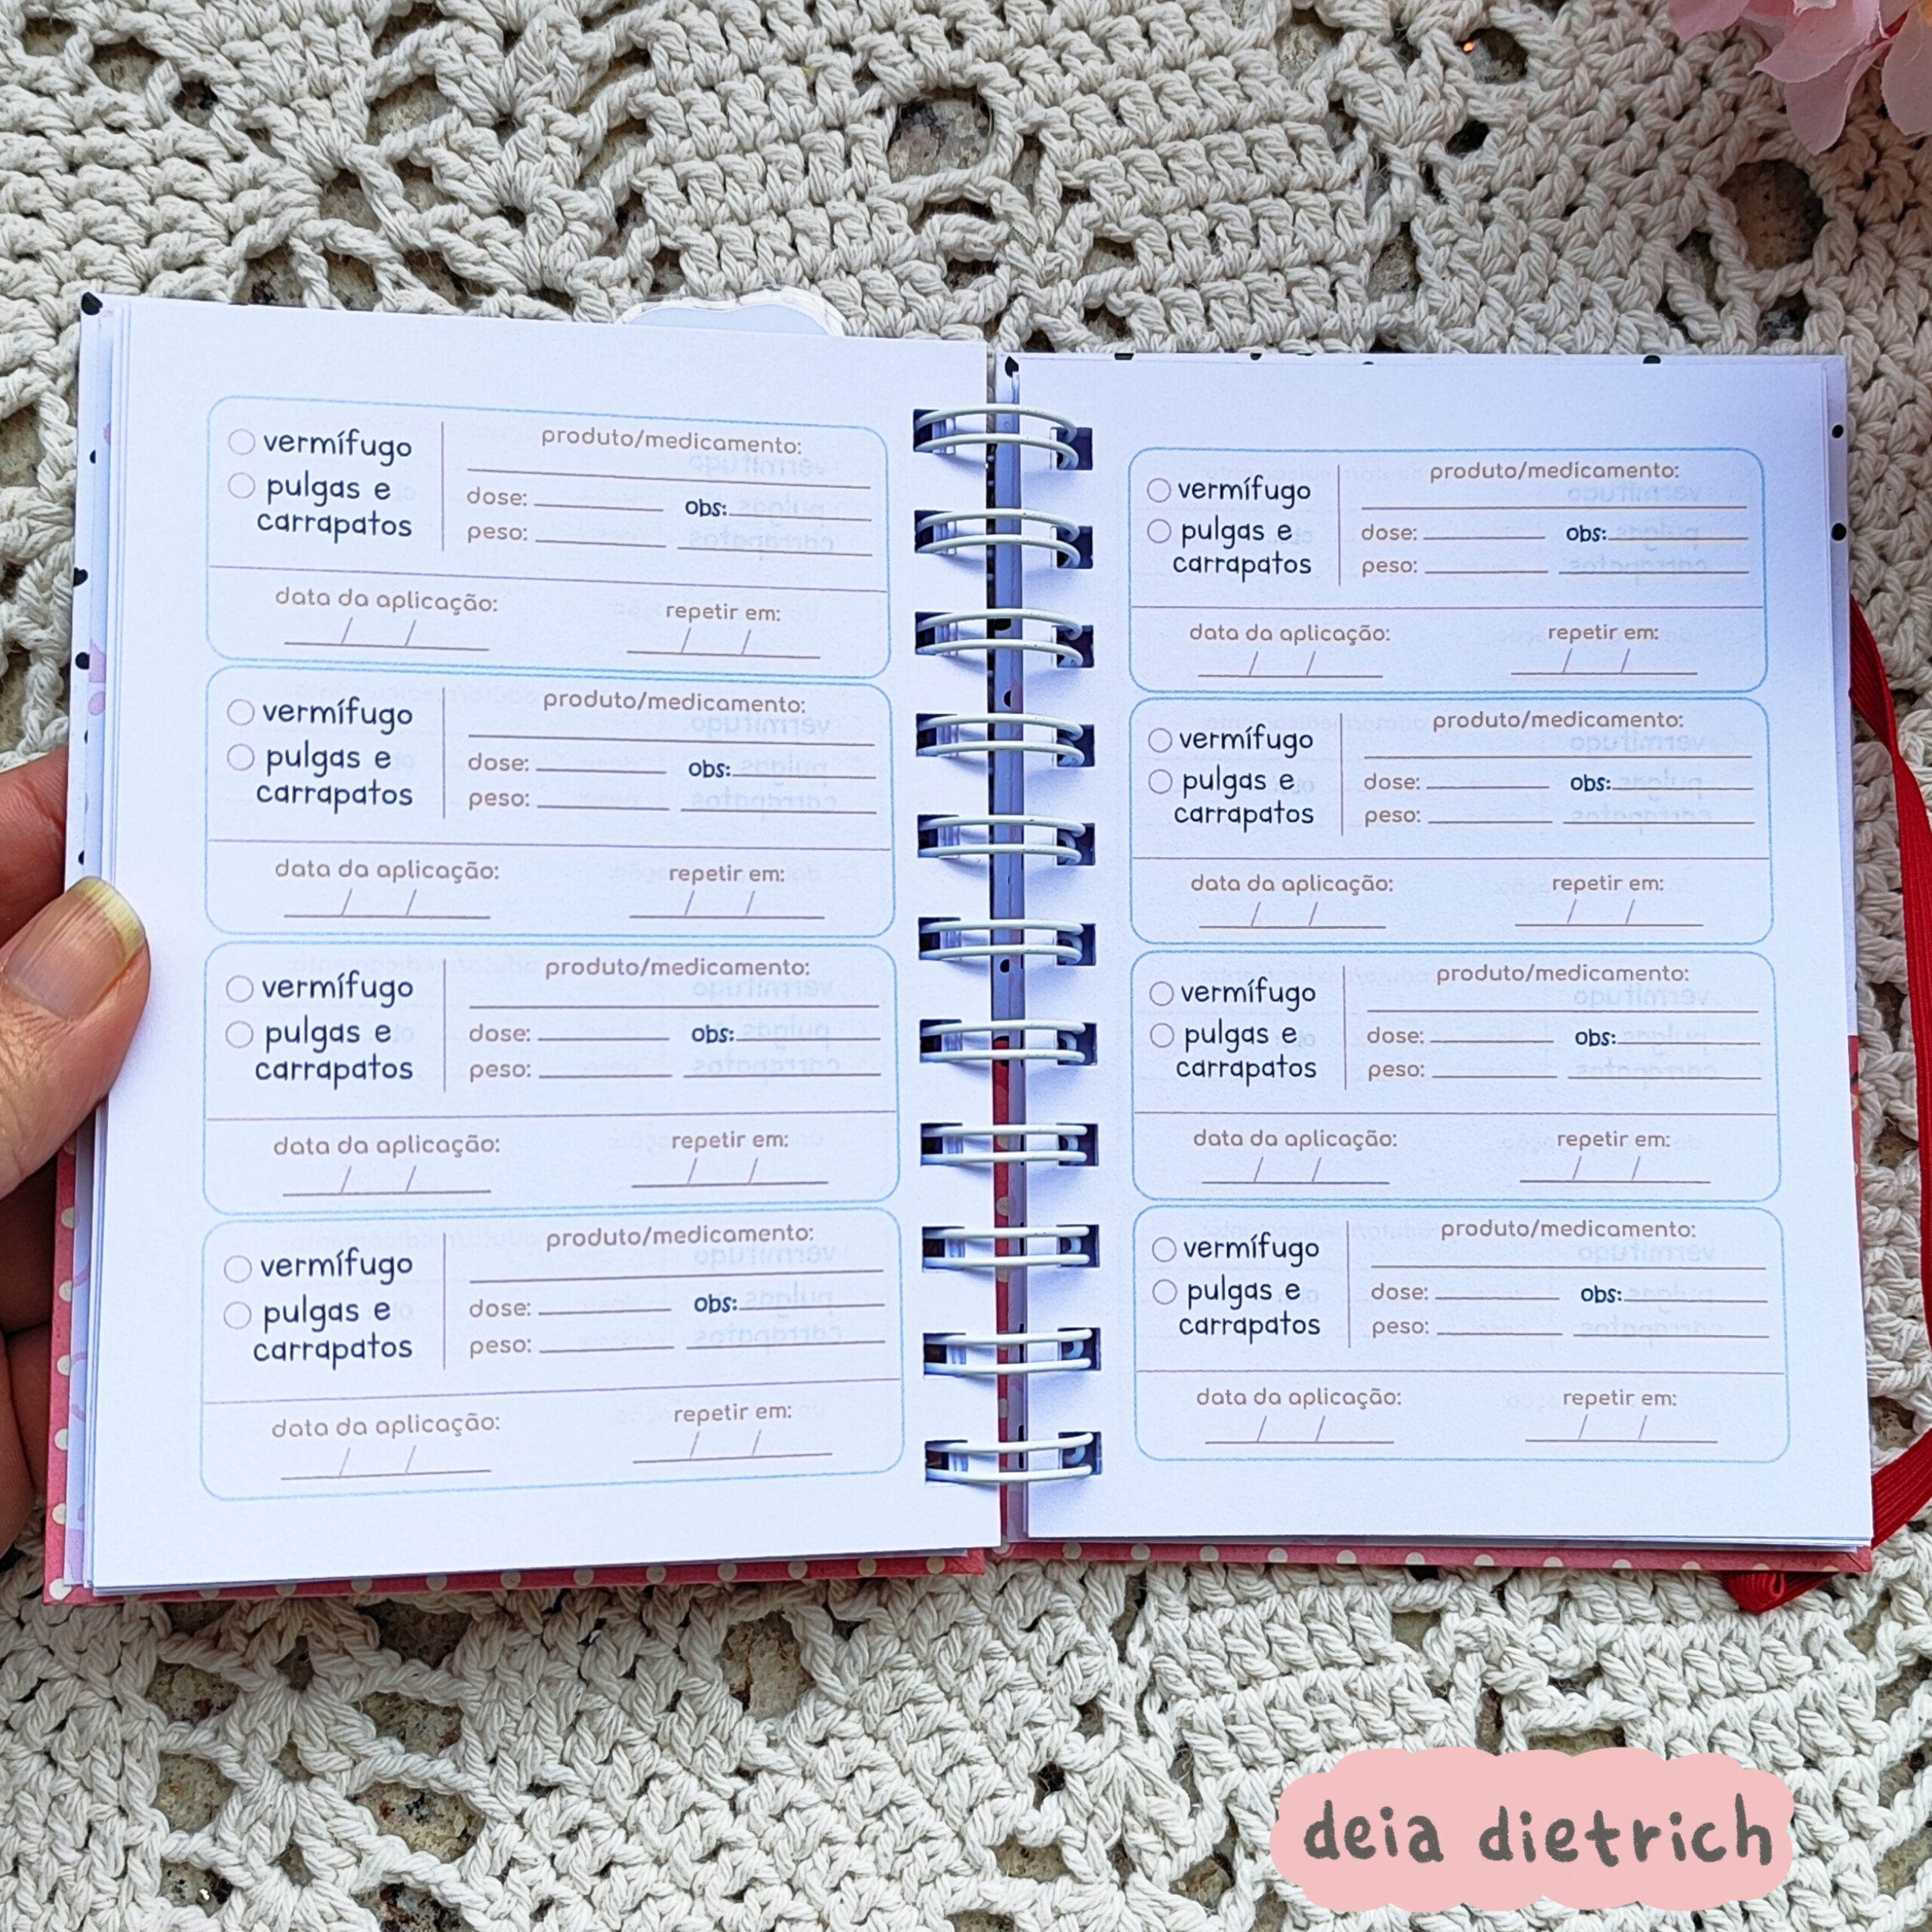 vermífugo
pulgas e
carrapatos
produto/medicamento:
dose: obs:
peso:
data da aplicação: repetir em:
/ / / /
vermífugo
pulgas e
carrapatos
produto/medicamento:
dose: obs:
peso:
data da aplicação: repetir em:
/ / / /
vermífugo
pulgas e
carrapatos
produto/medicamento:
dose: obs:
peso:
data da aplicação: repetir em:
/ / / /
vermífugo
pulgas e
carrapatos
produto/medicamento:
dose: obs:
peso:
data da aplicação: repetir em:
/ / / /
vermífugo
pulgas e
carrapatos
produto/medicamento:
dose: obs:
peso:
data da aplicação: repetir em:
/ / / /
vermífugo
pulgas e
carrapatos
produto/medicamento:
dose: obs:
peso:
data da aplicação: repetir em:
/ / / /
vermífugo
pulgas e
carrapatos
produto/medicamento:
dose: obs:
peso:
data da aplicação: repetir em:
/ / / /
vermífugo
pulgas e
carrapatos
produto/medicamento:
dose: obs:
peso:
data da aplicação: repetir em:
/ / / /
deia dietrich